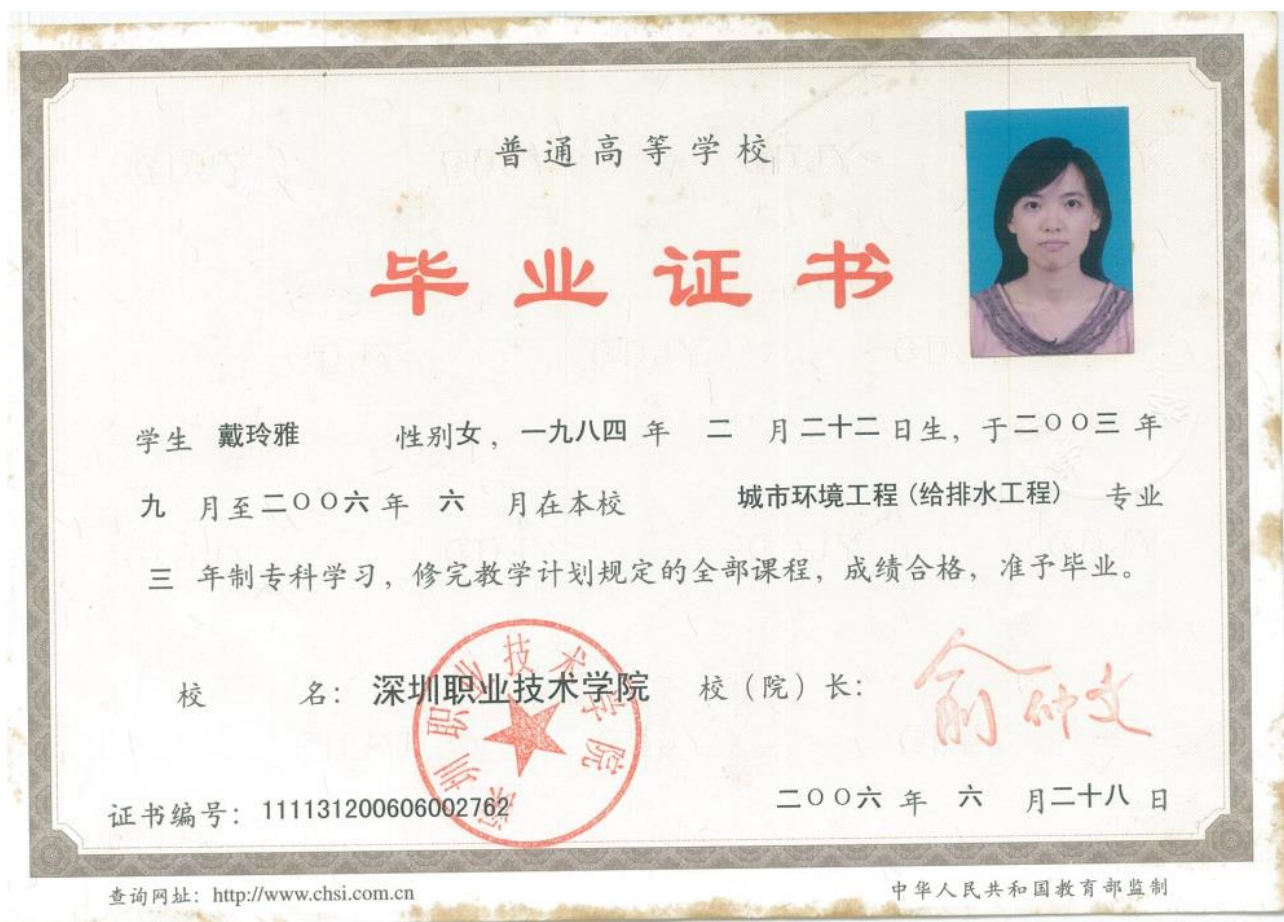 普通高等学校
毕业证书
学生 戴玲雅 性别女，一九八四年 二 月二十二日生，于二〇〇三年
九 月至二〇〇六年 六 月在本校 城市环境工程(给排水工程) 专业
三 年制专科学习，修完教学计划规定的全部课程，成绩合格，准予毕业。
校 名：深圳职业技术学院 校（院）长：俞仲文
深圳职业技术学院
证书编号：111131200606002762 二〇〇六年 六 月二十八日
查询网址：http://www.chsi.com.cn 中华人民共和国教育部监制